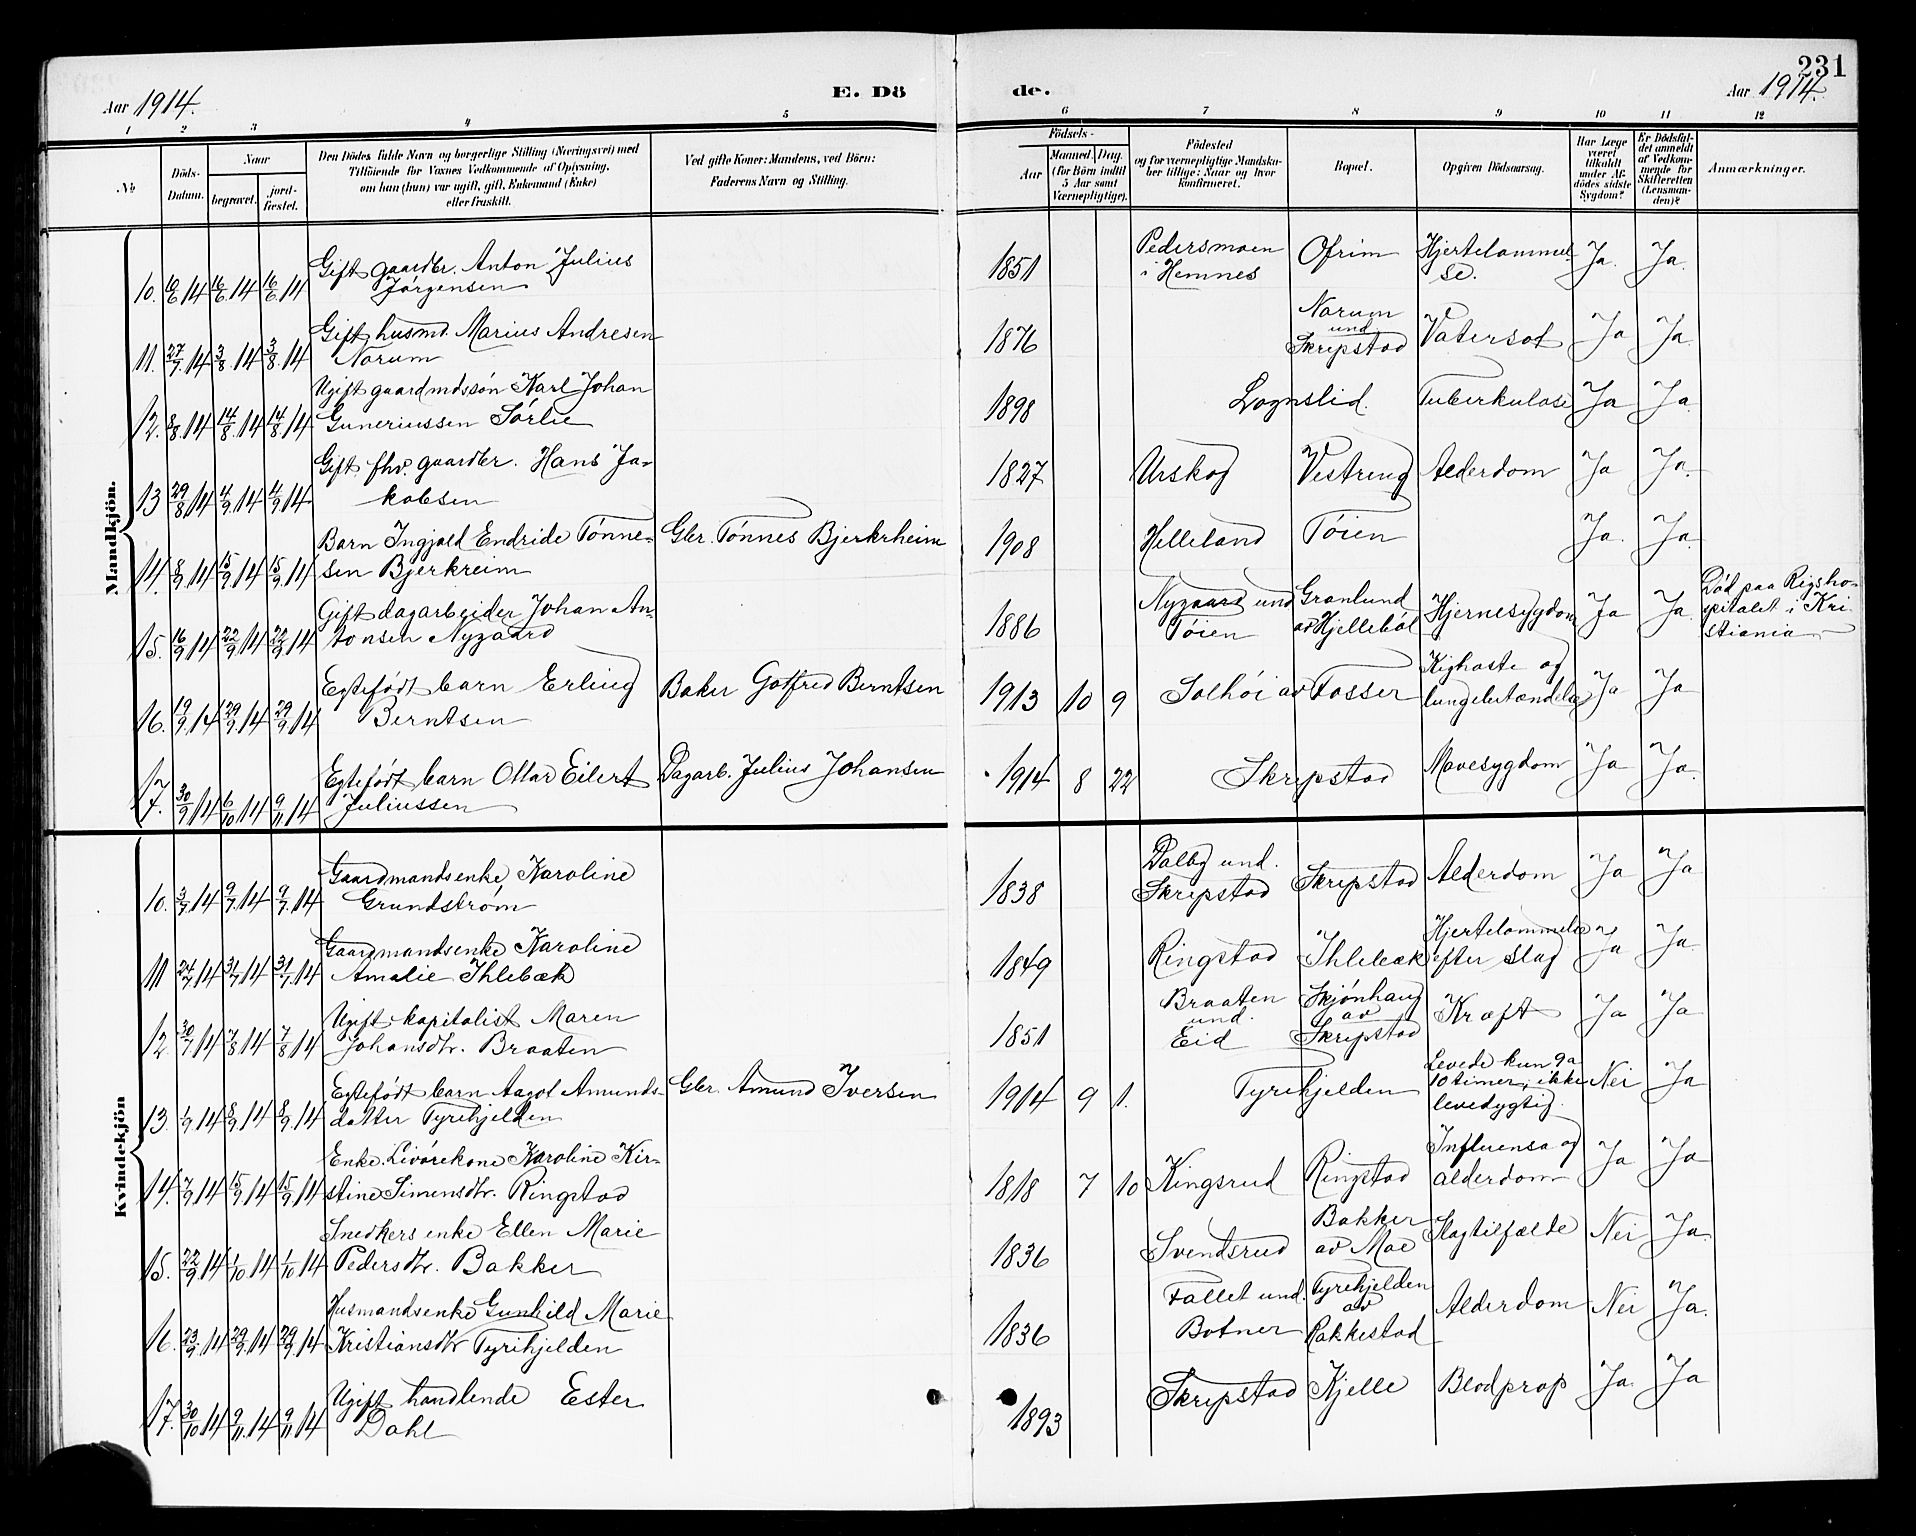 231
Aar 1914. E. Dö de. Aar 1914.
1 2 3 4 5 6 7 8 9 10 11 12
No
Döds-
Datum.
Naar
begravet.
jord-
fæstet.
Den Dödes fulde Navn og borgerlige Stilling (Næringsvei) med
Tilföiende for Voxnes Vedkommende af Oplysning,
om han (hun) var ugift, gift, Enkemand (Enke)
eller fraskilt.
Ved gifte Koner: Mandens, ved Börn:
Faderens Navn og Stilling.
Födsels-
Aar
Maaned. Dag.
(for Börn indtil
5 Aar samt
Værnepligtige).
Födested
og for værnepligtige Mandska-
ber tillige: Naar og hvor
konfirmeret.
Bopæl.
Opgiven Dödsaarsag.
Har Læge
været
tilkaldt
under Af-
dödes sidste
Sygdom?
Er Dödsfal-
det anmeldt
af Vedkom-
mende for
Skifteretten
(Lensman-
den)?
Anmærkninger.
Mandkjön.
10. 10/6 14 16/6 14 16/6 14
Gift gaardbr. Anton Julius
Jørgensen
1851
Pedersmoen
i Hemnes
Ofrim
Hjertelammel
se.
Ja. Ja.
11. 27/7 14 3/8 14 3/8 14
Gift husmd. Marius Andresen
Norum
1876
Norum
und
Skrepstad
Vatersot
Ja Ja.
12. 8/8 14 14/8 14 14/8 14
Ugift gaardmdssøn Karl Johan
Guneriussen Sørlie
1898
Lognslid.
Tuberkulose
Ja Ja.
13 29/8 14 4/9 14 4/9 14
Gift fhv. gaardbr. Hans Ja-
kobsen
1827
Urskog
Vestreng
Alderdom
Ja Ja.
14. 8/9 14 15/9 14 15/9 14
Barn Ingjald Endride Tønne-
sen Bjerkreim
Gbr. Tønnes Bjerkrheim
1908
Helleland
Tøien
Ja. Ja.
15. 16/9 14 22/9 14 22/9 14
Gift dagarbeider Johan An-
tonsen Nygaard
1886
Nygaard und
Tøien
Granlund
av Hjellebøl
Hjernesygdom
Ja Ja.
Død paa Rigsho-
spitalet i Kri
stiania
16. 19/9 14 29/9 14 29/9 14
Egtefødt barn Erling
Berntsen
Baker Gotfred Berntsen
1913 10 9
Solhøi av Fosser
Kighoste og
lungebetændelse
Ja Ja
17. 30/9 14 6/10 14 9/11 14
Egtefødt barn Ottar Eilert
Juliussen
Dagarb. Julius Johansen
1914 8 22
Skrepstad
Mavesygdom
Ja Ja.
Kvindekjön
10. 3/7 14 9/7 14 9/7 14
Gaardmandsenke Karoline
Grundstrøm
1838
Dalby und.
Skrepstad
Skrepstad
Alderdom
Ja Ja
11 24/7 14 31/7 14 31/7 14
Gaardmandsenke Karoline
Amalie Ihlebæk
1849
Ringstad
Ihlebæk
Hjertelammelse
efter slag
Ja Ja.
12 30/7 14 7/8 14 7/8 14
Ugift kapitalist Maren
Johansdtr. Braaten
1851
Braaten
und.
Eid
Skjønhaug
av
Skrepstad
Kræft
Ja Ja
13. 1/9 14 8/9 14 8/9 14
Egtefødt barn Aagot Amunds-
datter Tyrihjelden
Gbr. Amund Iversen
1914 9 1.
Tyrihjelden
Levede kun 9 a
10 timer, ikke
levedygtig.
Nei Ja
14. 7/9 14 15/9 14 15/9 14
Enke. Livørekone Karoline Kir-
stine Simensdtr. Ringstad
1818 7 10
Kingsrud
Ringstad
Influensa og
alderdom
Ja Ja
15. 22/9 14 1/10 14 1/10 14
Snedkersenke Ellen Marie
Pedersdtr. Bakker
1836
Svendsrud
Bakker
av Moe
Slagtilfælde
Nei Ja.
16. 23/9 14 29/9 14 29/9 14
Husmandsenke Gunhild Marie
Kristiansdtr Tyrihjelden
1836
Fallet und.
Botner
Tyrihjelden
av
Rakkestad
Alderdom
Nei Ja.
17. 30/10 14 9/11 14 9/11 14
Ugift handlende Ester
Dahl
1893
Skrepstad
Kjelle
Blodprop
Ja. Ja